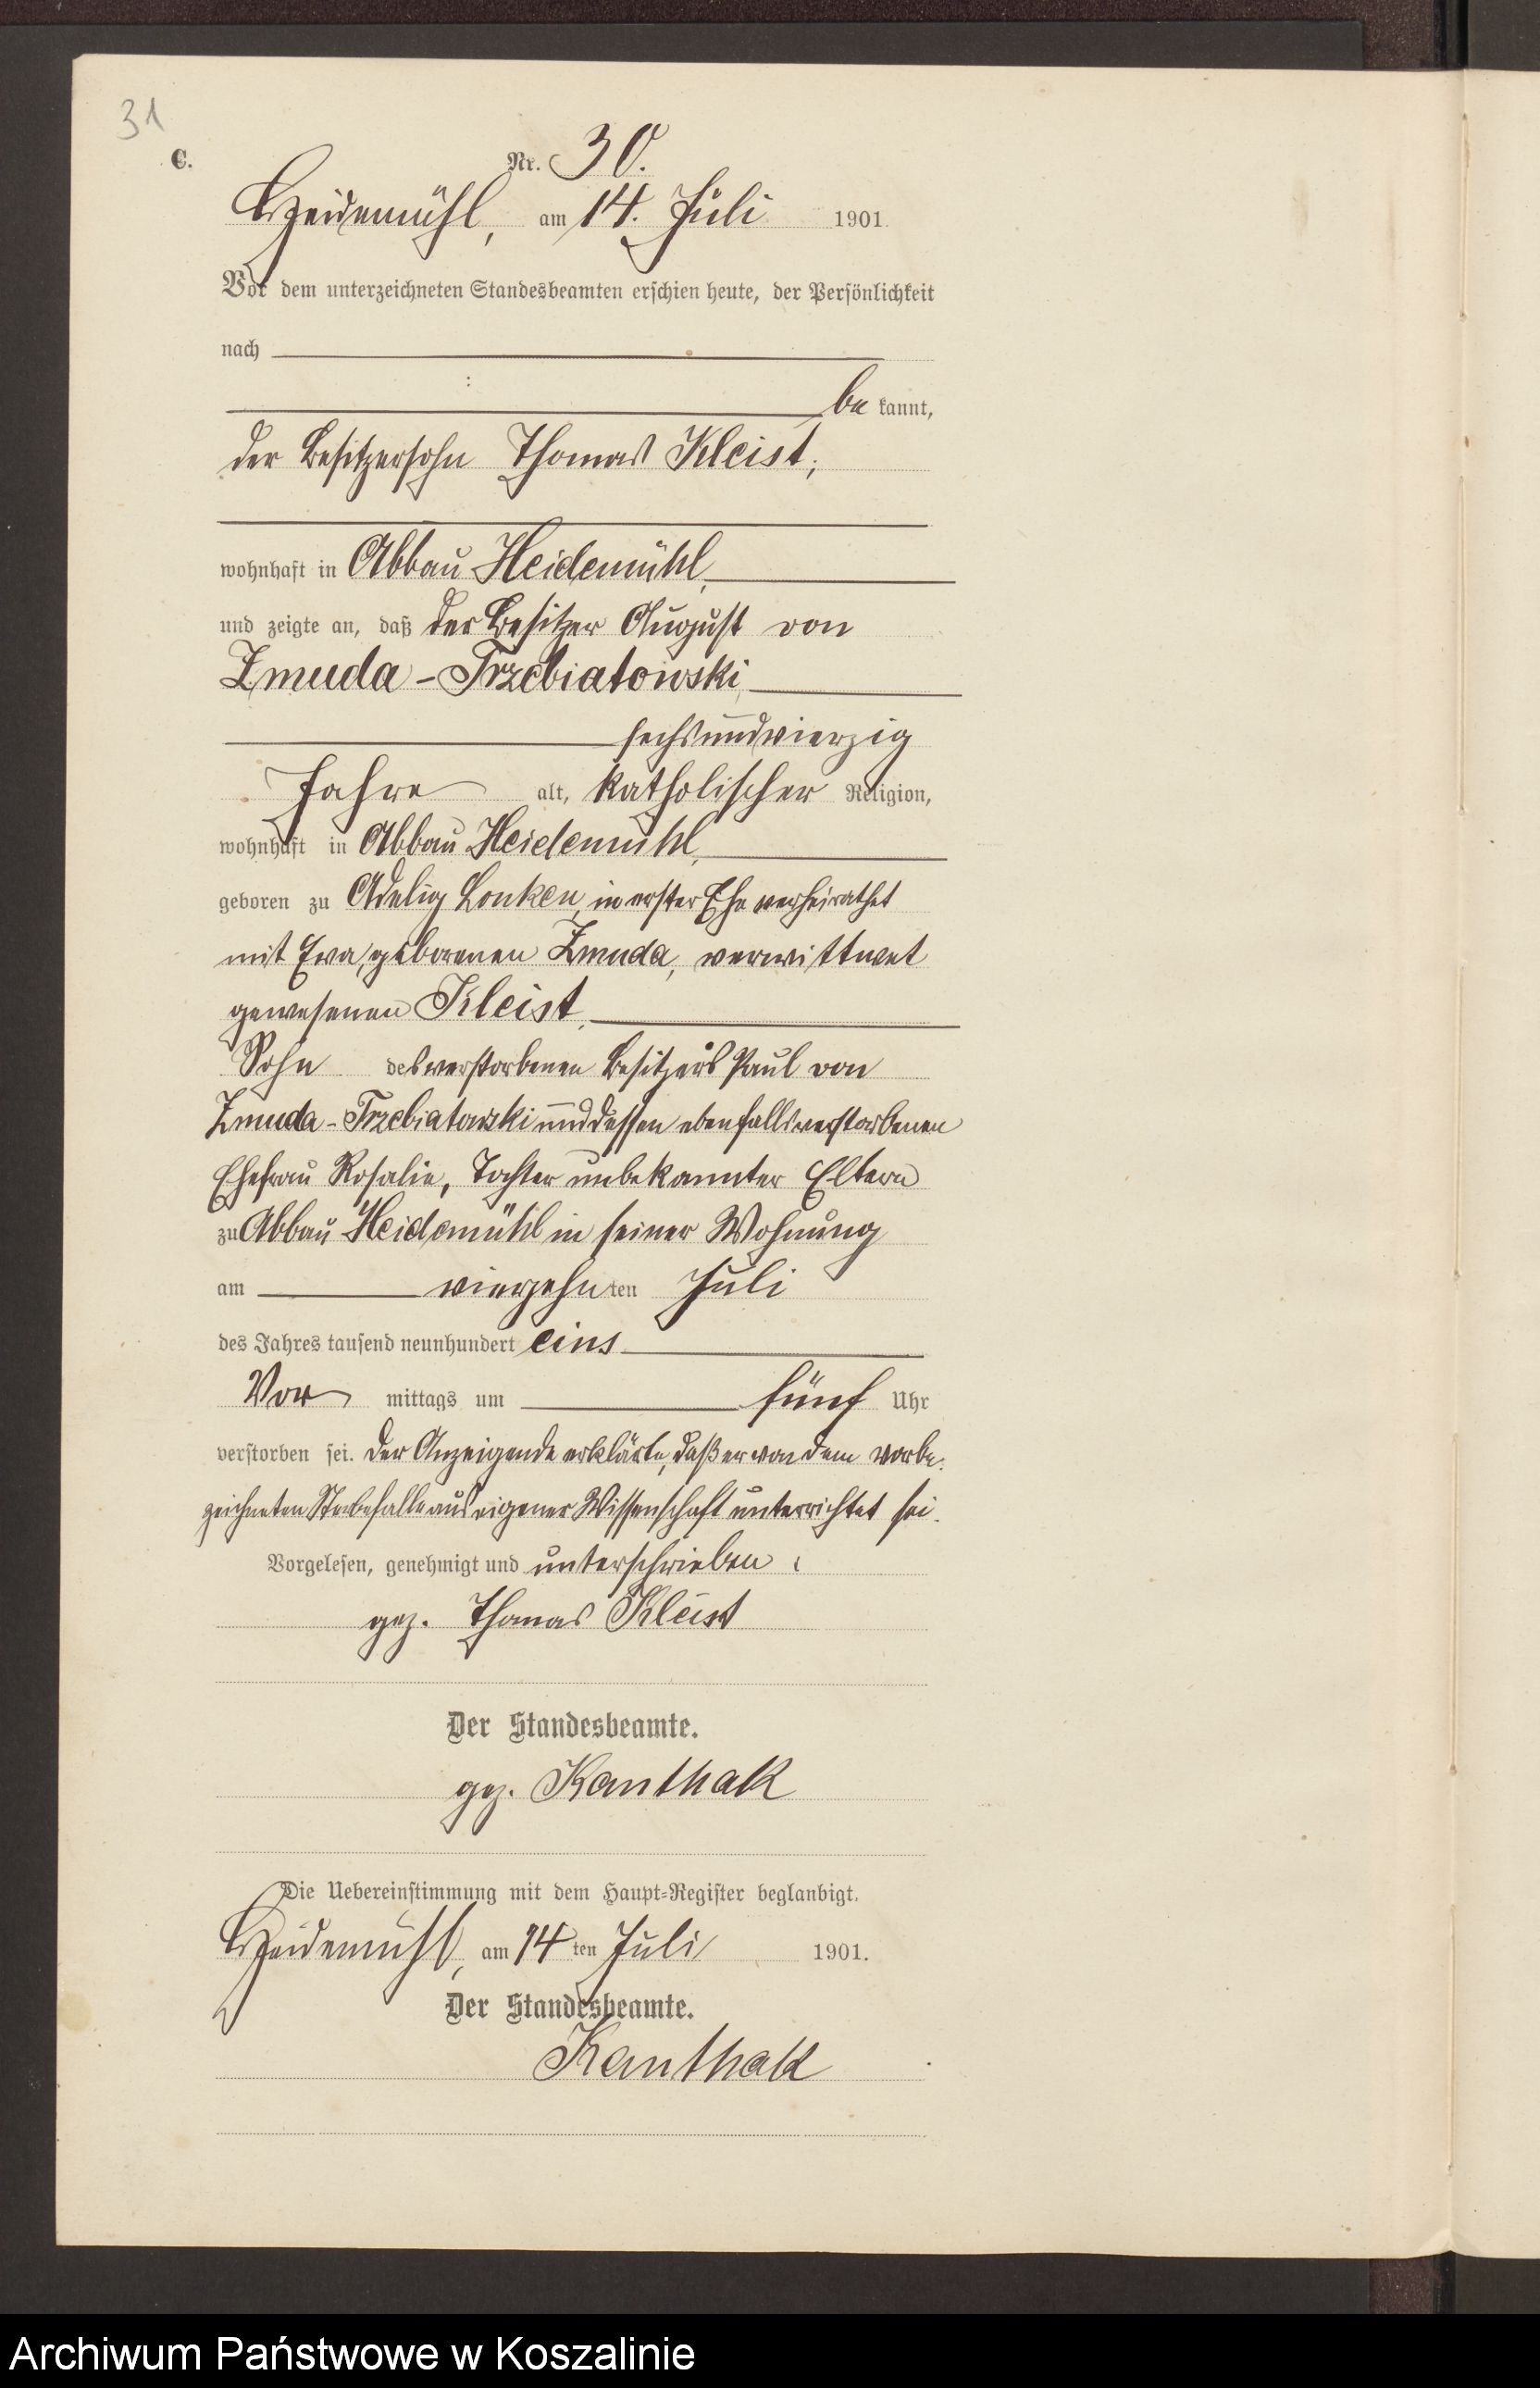 31
C.
Nr. 30.
Heidemühl, am 14. Juli 1901.
Vor dem unterzeichneten Standesbeamten erschien heute, der Persönlichkeit
nach
be kannt,
der Besitzersohn Thomas Kleist,
wohnhaft in Abbau Heidemühl,
und zeigte an, daß der Besitzer August von
Zmuda-Trzebiatowski
sechsundvierzig
Jahre alt, katholischer Religion,
wohnhaft in Abbau Heidemühl,
geboren zu Adelig Lonken, in erster Ehe verheirathet
mit Eva, geborenen Zmuda, verwittwet
gewesenen Kleist,
Sohn des verstorbenen Besitzers Paul von
Zmuda-Trzebiatowski und dessen ebenfalls verstorbenen
Ehefrau Rosalie, Tochter unbekannter Eltern
zu Abbau Heidemühl in seiner Wohnung
am vierzehnten Juli
des Jahres tausend neunhundert eins
Vor mittags um fünf Uhr
verstorben sei. Der Anzeigende erklärte, daß er von dem vorbe-
zeichneten Sterbefalle aus eigener Wissenschaft unterrichtet sei.
Vorgelesen, genehmigt und unterschrieben
gez. Thomas Kleist
Der Standesbeamte.
gez. Kanthak
Die Uebereinstimmung mit dem Haupt-Register beglaubigt.
Heidemühl, am 14 ten Juli 1901.
Der Standesbeamte.
Kanthak
Archiwum Państwowe w Koszalinie